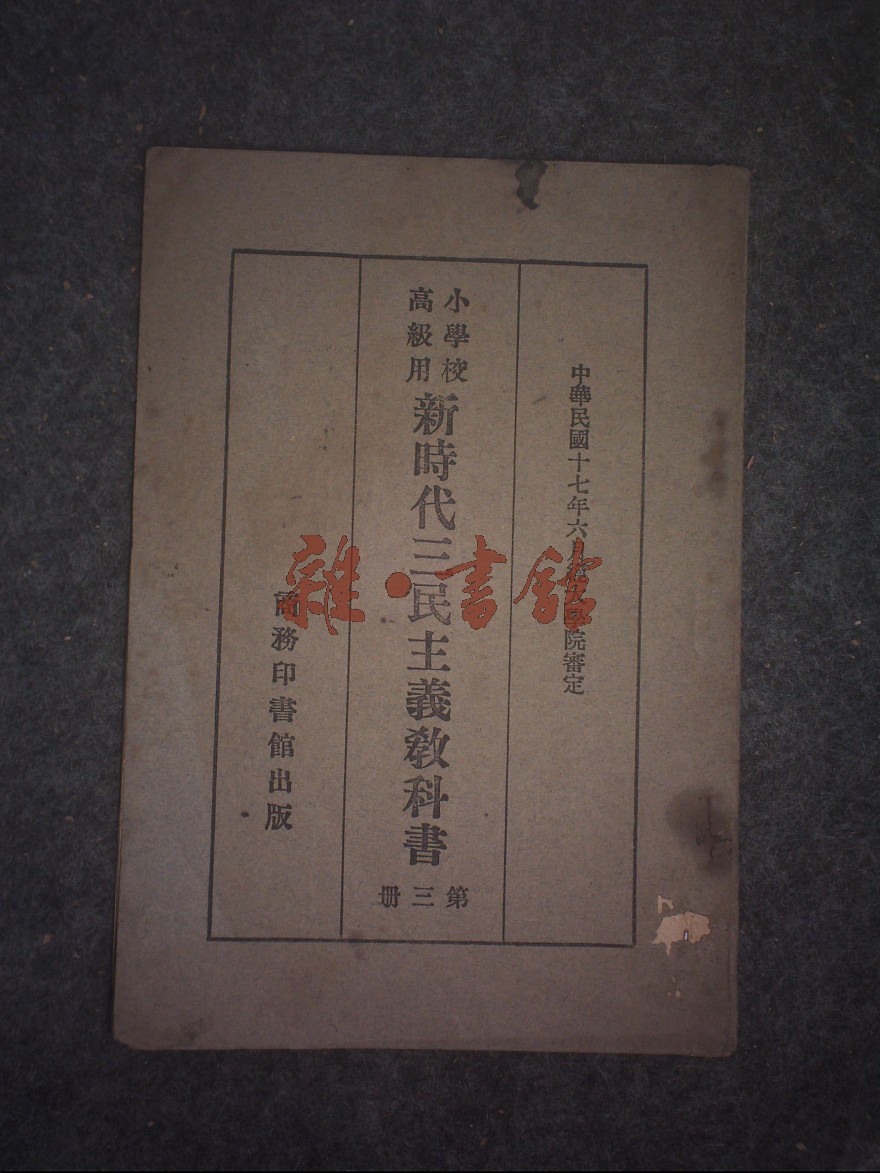 中華民國十七年六月大學院審定
小學校
高級用
新時代三民主義教科書
第三册
商務印書館出版
雜·書館